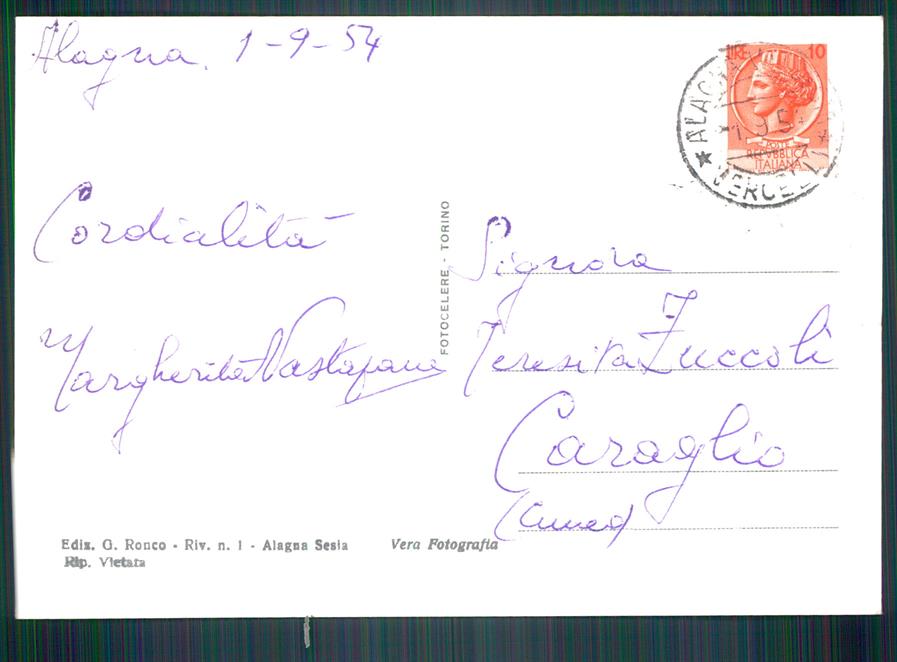 Alagna. 1-9-54
LIRE 10
ALAGNA
-1.9.54
POSTE
REPVBBLICA
ITALIANA
VERCELLI
Cordialità
FOTOCELERE - TORINO
Signora
Margherita
Teresita Zuccoli
Caraglio
(Cuneo)
Ediz. G. Ronco - Riv. n. 1 - Alagna Sesia
Vera Fotografia
Rip. Vietata